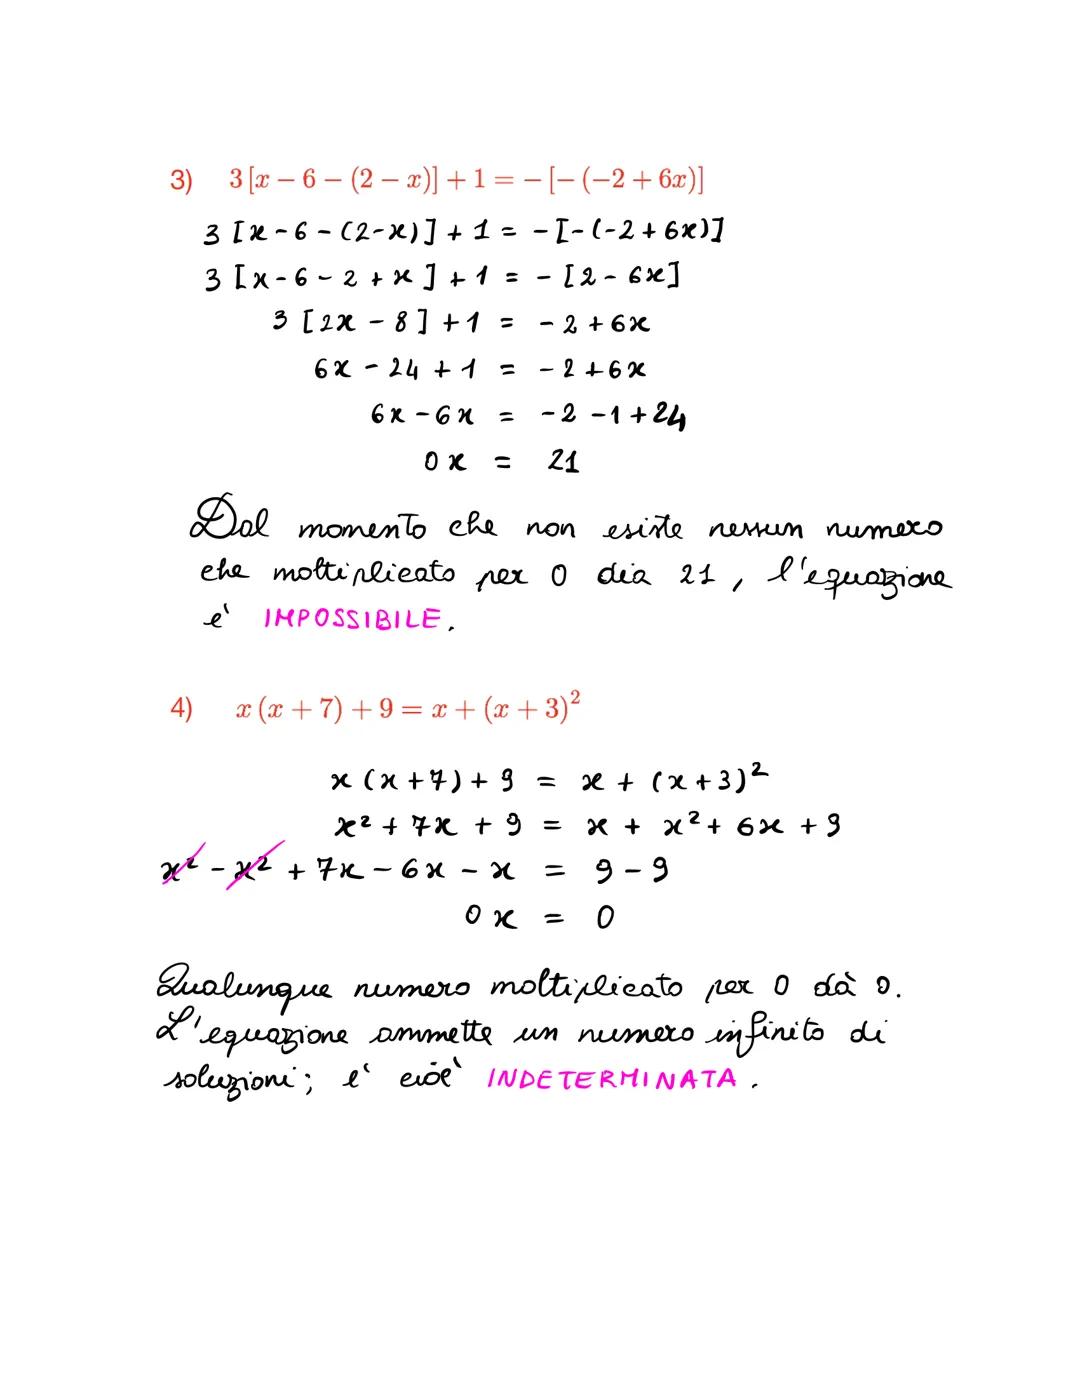 3) 3 [x − 6 − (2 − x)] + 1 = − [− (−2 + 6x)]
3 [x - 6 - (2-x)] + 1 = - [-(-2 + 6x)]
3 [x - 6 - 2 + x] + 1 = - [2 - 6x]
3 [2x - 8] + 1 = - 2 + 6x
6x - 24 + 1 = - 2 + 6x
6x - 6x = - 2 - 1 + 24
0x = 21
Dal momento che non esiste nessun numero
che moltiplicato per 0 dia 21, l'equazione
e' IMPOSSIBILE.
4) x (x + 7) + 9 = x + (x + 3)²
x (x + 7) + 9 = x + (x + 3)²
x² + 7x + 9 = x + x² + 6x + 9
x² - x² + 7x - 6x - x = 9 - 9
0x = 0
Qualunque numero moltiplicato per 0 dà 0.
L'equazione ammette un numero infinito di
soluzioni; e' cioè INDETERMINATA.